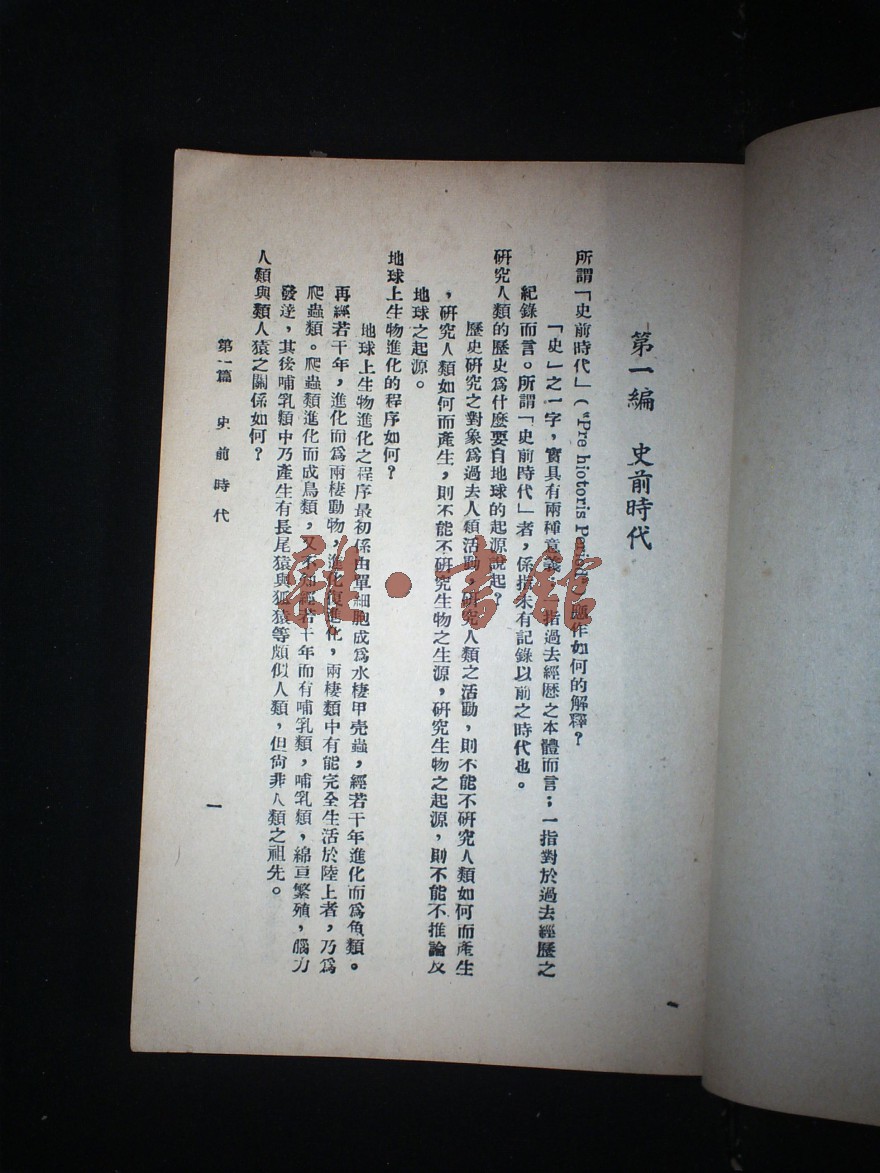 第一編 史前時代
所謂「史前時代」("Pre hiotoris Period")應作如何的解釋?
「史」之一字,實具有兩種意義;一指過去經歷之本體而言;一指對於過去經歷之
紀錄而言。所謂「史前時代」者,係指未有記錄以前之時代也。
研究人類的歷史爲什麼要自地球的起源說起?
歷史研究之對象爲過去人類活動,研究人類之活動,則不能不研究人類如何而產生
,研究人類如何而產生,則不能不研究生物之生源,研究生物之起源,則不能不推論及
地球之起源。
地球上生物進化的程序如何?
地球上生物進化之程序最初係由單細胞成爲水棲甲壳蟲,經若干年進化而爲魚類。
再經若干年,進化而爲兩棲動物,進化復進化,兩棲類中有能完全生活於陸上者,乃爲
爬蟲類。爬蟲類進化而成鳥類,又不知經若干年而有哺乳類,哺乳類,綿亘繁殖,腦力
發達,其後哺乳類中乃產生有長尾猿與狐猿等頗似人類,但尚非人類之祖先。
人類與類人猿之關係如何?
第一篇 史前時代
一
雜·書館